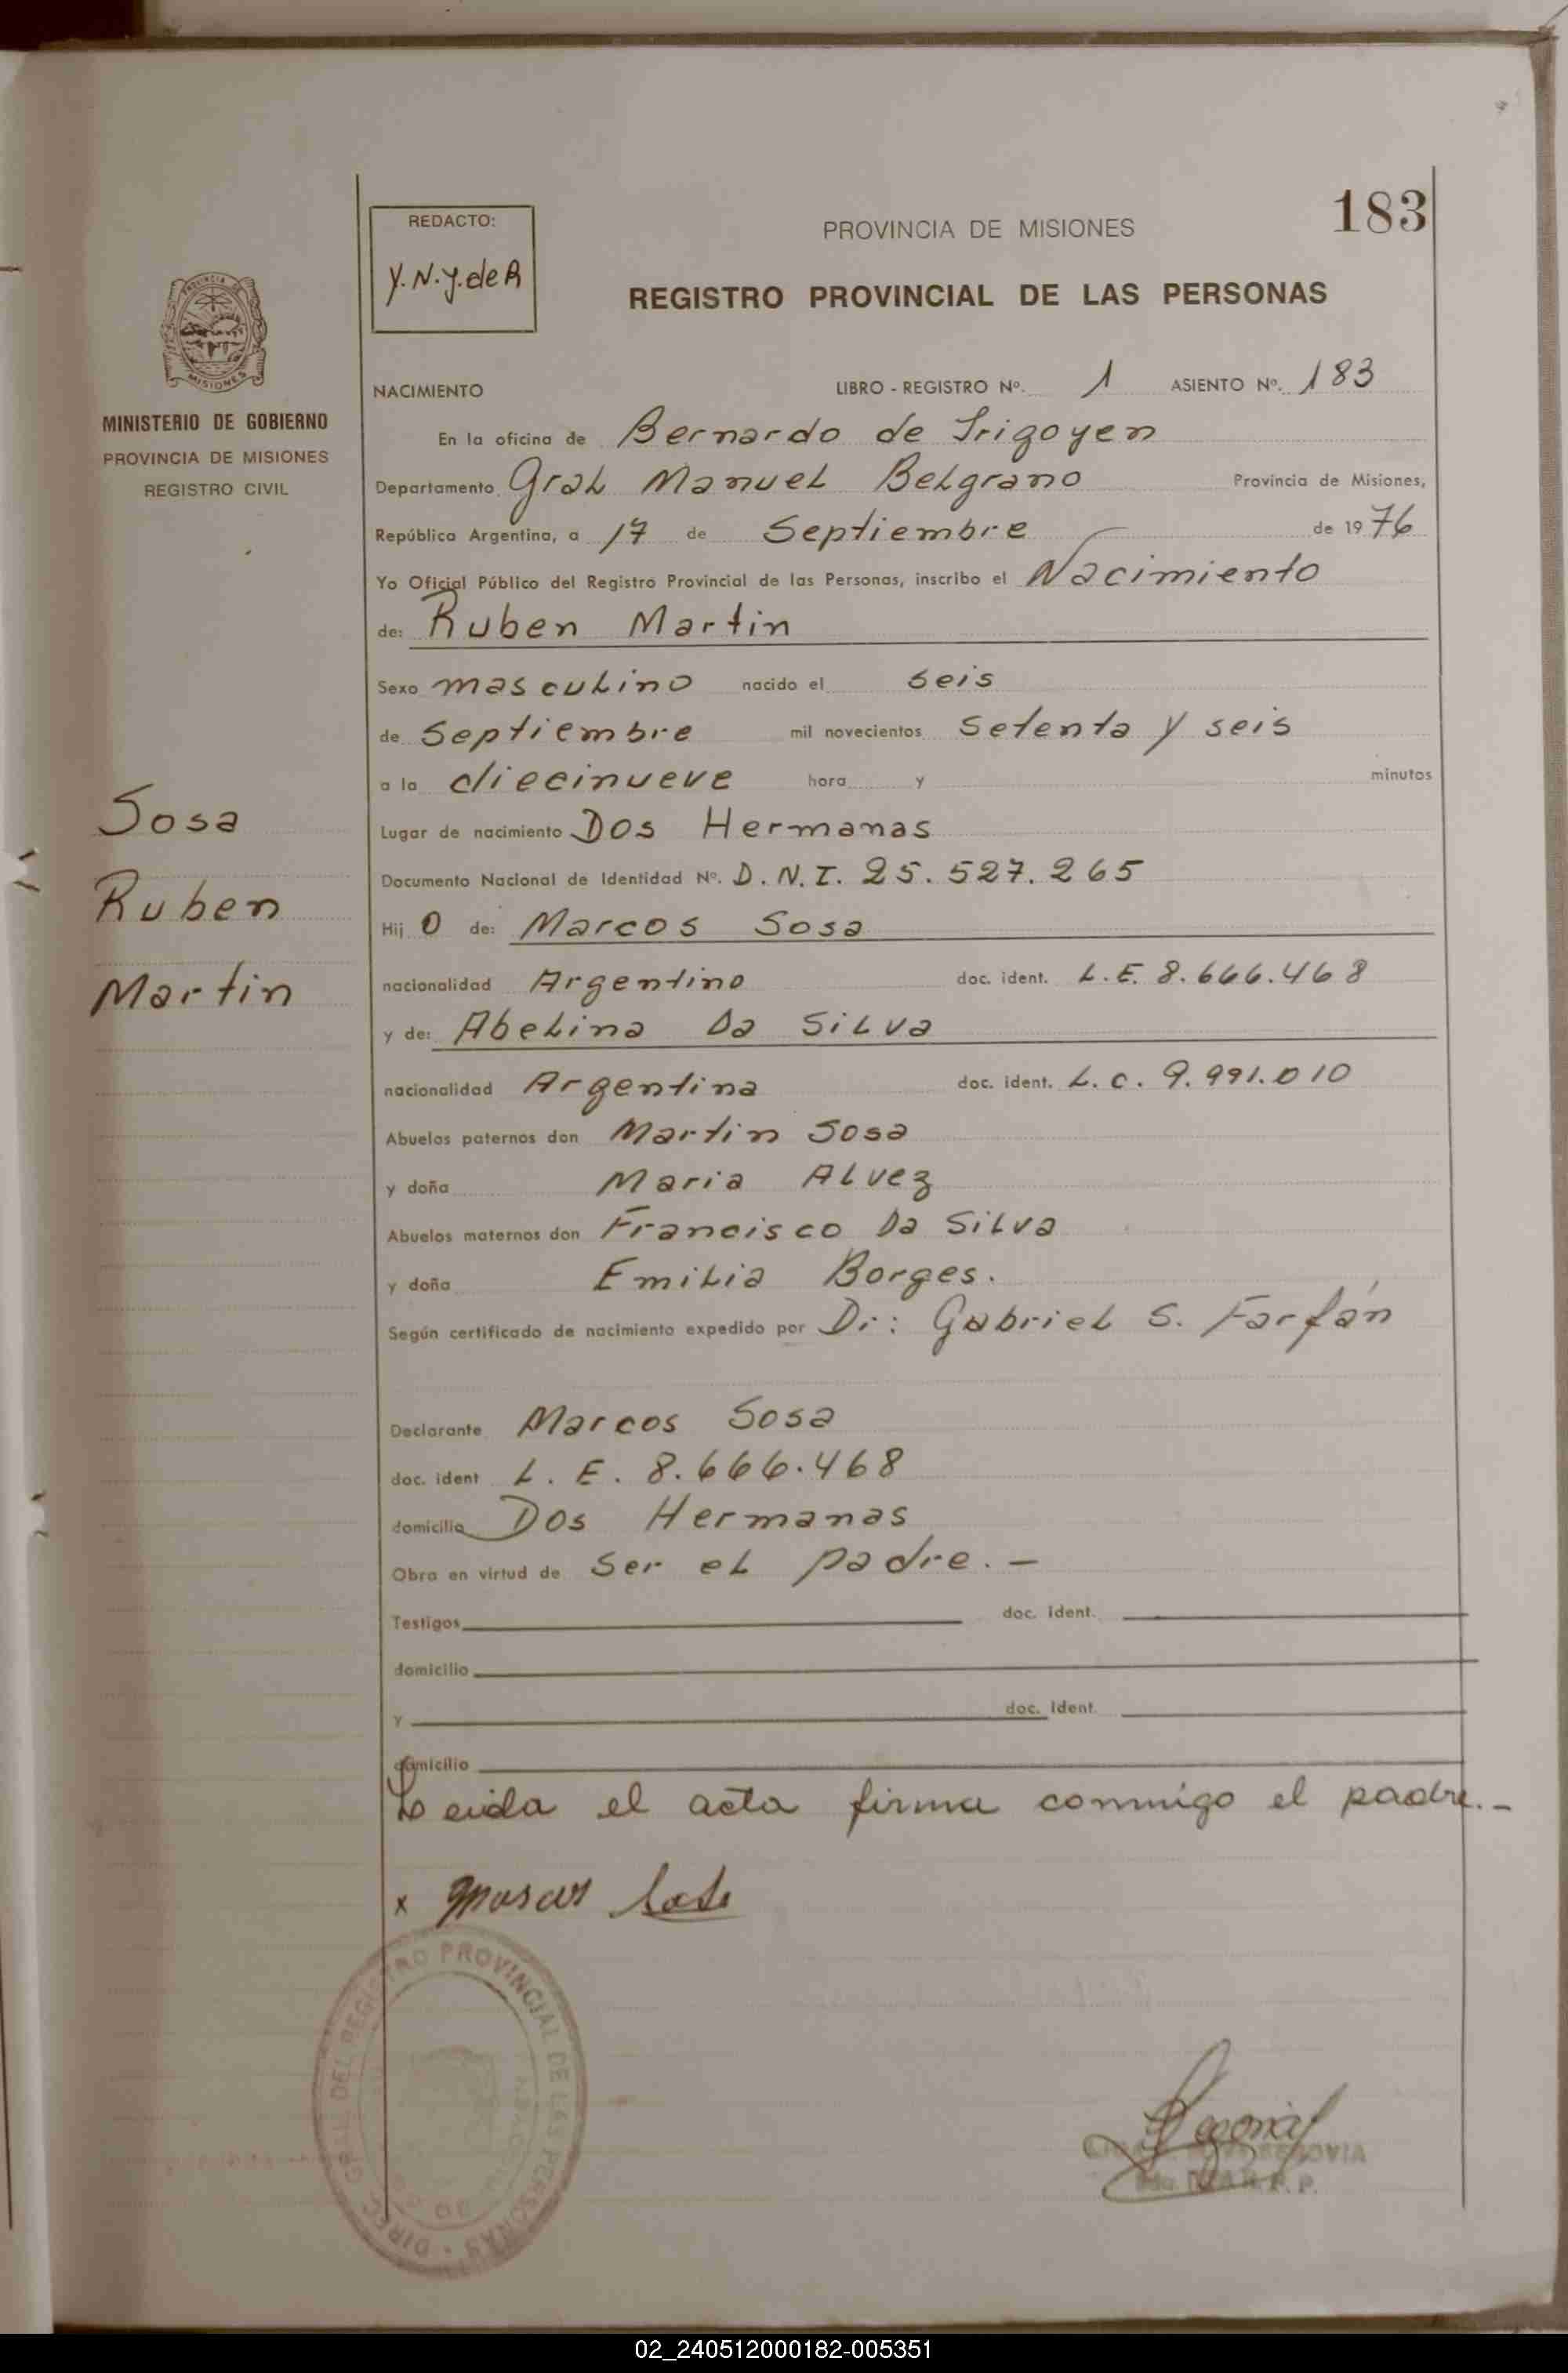 183
REDACTO:
Y.N.Y.de R
PROVINCIA DE MISIONES
REGISTRO PROVINCIAL DE LAS PERSONAS
PROVINCIA DE
MISIONES
MINISTERIO DE GOBIERNO
PROVINCIA DE MISIONES
REGISTRO CIVIL
NACIMIENTO LIBRO - REGISTRO Nº. 1 ASIENTO Nº. 183
En la oficina de Bernardo de Irigoyen
Departamento Gral Manuel Belgrano Provincia de Misiones,
República Argentina, a 17 de Septiembre de 1976
Yo Oficial Público del Registro Provincial de las Personas, inscribo el Nacimiento
de: Ruben Martin
Sexo masculino nacido el seis
de Septiembre mil novecientos setenta y seis
a la diecinueve hora y minutos
Lugar de nacimiento Dos Hermanas
Documento Nacional de Identidad Nº. D.N.I. 25.527.265
Hij o de: Marcos Sosa
nacionalidad Argentino doc. ident. L.E. 8.666.468
y de: Abelina Da Silva
nacionalidad Argentina doc. ident. L.C. 9.991.010
Abuelos paternos don Martin Sosa
y doña Maria Alvez
Abuelos maternos don Francisco Da Silva
y doña Emilia Borges.
Según certificado de nacimiento expedido por Dr: Gabriel S. Farfán
Declarante Marcos Sosa
doc. ident L.E. 8.666.468
domicilio Dos Hermanas
Obra en virtud de ser el padre.-
Testigos doc. ident.
domicilio
y doc. ident.
domicilio
Leida el acta firma conmigo el padre.-
Sosa
Ruben
Martin
x Marcos Sosa
DIREC. GRAL. DEL REGISTRO PROVINCIAL DE LAS PERSONAS
02_240512000182-005351